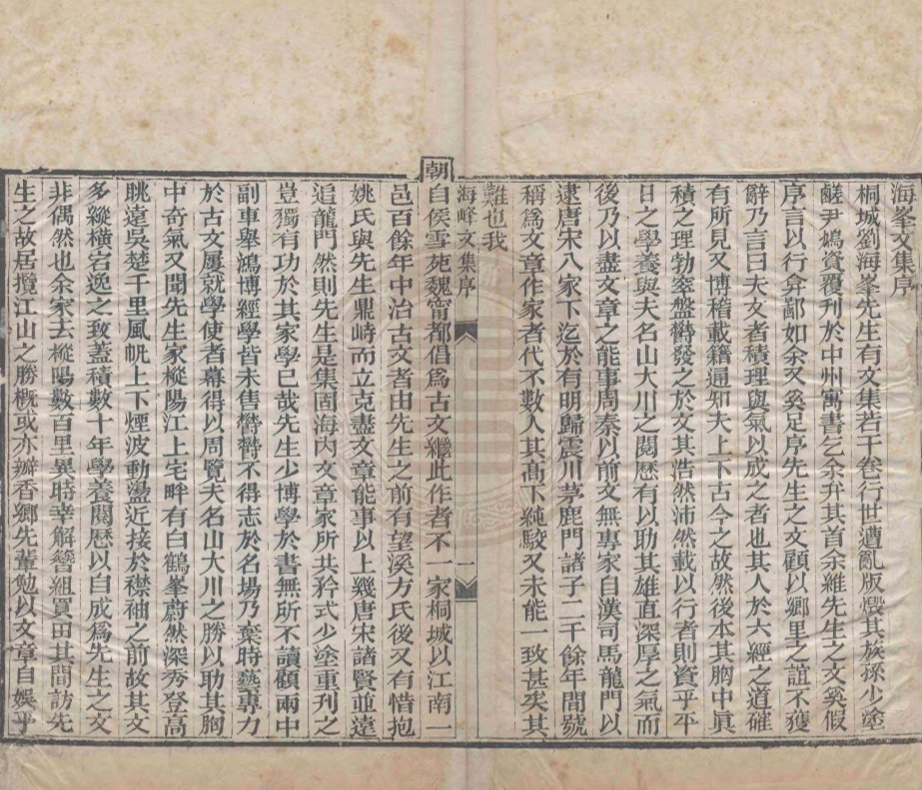 海峯文集序
桐城劉海峯先生有文集若干卷行世遭亂版燬其族孫少塗
鹺尹鳩資覆刋於中州寓書乞余弁其首余維先生之文奚假
序言以行弇鄙如余又奚足序先生之文顧以鄉里之誼不獲
辭乃言曰夫文者積理與氣以成之者也其人於六經之道確
有所見又博稽載籍通知夫上下古今之故然後本其胸中眞
積之理勃窣盤欎發之於文其浩然沛然載以行者則資乎平
日之學養與夫名山大川之閱歷有以助其雄直深厚之氣而
後乃以盡文章之能事周秦以前文無專家自漢司馬龍門以
逮唐宋八家下迄於有明歸震川茅鹿門諸子二千餘年間號
稱爲文章作家者代不數人其高下純駮又未能一致甚矣其
難也我
海峰文集序
一
朝自侯雪苑魏甯都倡爲古文繼此作者不一家桐城以江南一
邑百餘年中治古文者由先生之前有望溪方氏後又有惜抱
姚氏與先生鼎峙而立克盡文章能事以上幾唐宋諸賢並遠
追龍門然則先生是集固海内文章家所共矜式少塗重刊之
豈獨有功於其家學已哉先生少博學於書無所不讀顧兩中
副車舉鴻博經學皆未售欎欎不得志於名場乃棄時藝專力
於古文屢就學使者幕得以周覽夫名山大川之勝以助其胸
中奇氣又聞先生家樅陽江上宅畔有白鶴峯蔚然深秀登高
眺遠吳楚千里風帆上下煙波動盪近接於襟袖之前故其文
多縱橫宕逸之致蓋積數十年學養閱歷以自成爲先生之文
非偶然也余家去樅陽數百里異時幸解簪組買田其間訪先
生之故居攬江山之勝概或亦瓣香鄉先輩勉以文章自娛乎